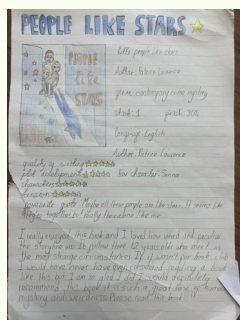 PEOPLE LIKE STARS
PEOPLE
LIKE
STARS
Title: people like stars
Author: Patrice Lawrence
genre: contemporary crime mystery
Language: English
Author: Patrice Lawrence
quality of writing
plot development
characters
favourite quote: Maybe all these people are like stars. It seems like
together but really like me
I really enjoyed this book and I loved how weird and peculiar
the storyline was. It follows three 12 years olds who meet in
the most strange circumstances. If it wasn't for book club
I would have never have considered reading a book
like this but I am so glad I did. I would definitely
recommend this book it is such a great mix of humour
mystery and weirdness. Please read this book